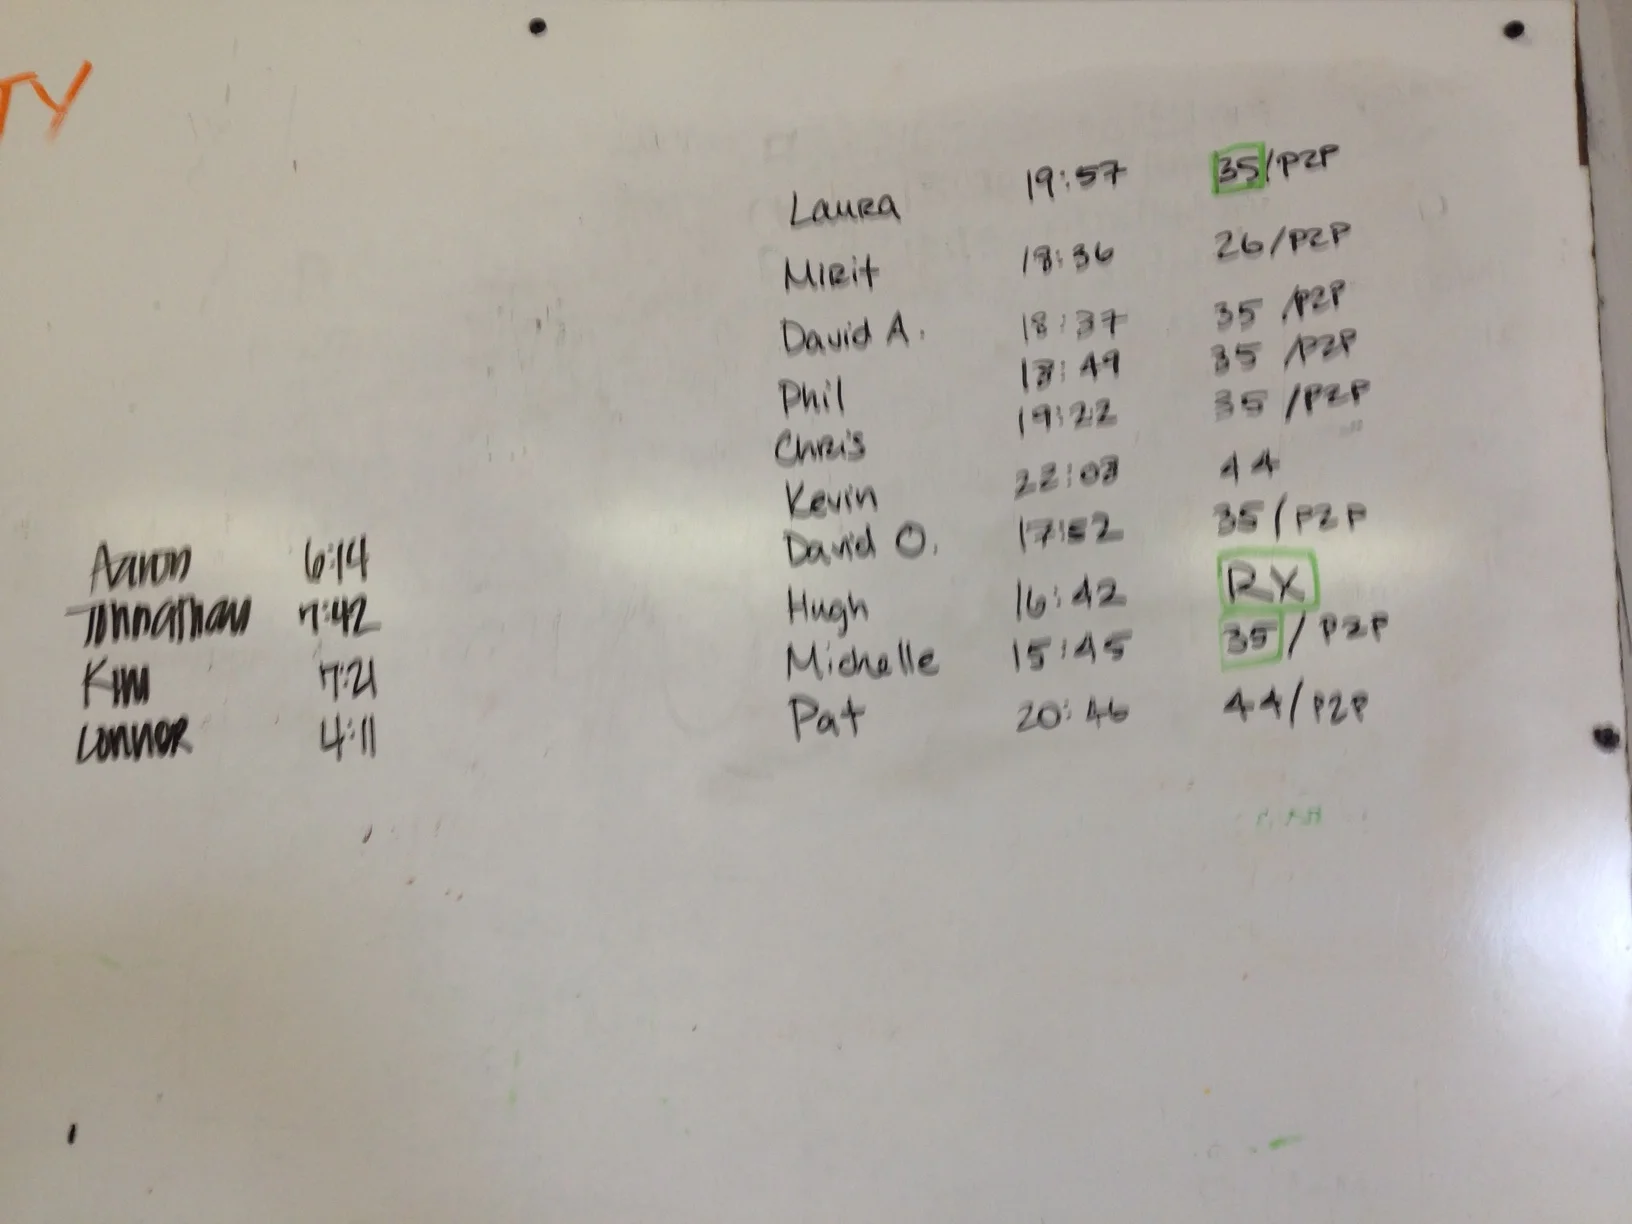 TY
Laura 19:57 35/P2P
Mirit 18:36 26/P2P
David A. 18:37 35/P2P
Phil 18:49 35/P2P
Chris 19:22 35/P2P
Kevin 22:03 44
David O. 17:52 35/P2P
Hugh 16:42 RX
Michelle 15:45 35/P2P
Pat 20:46 44/P2P
Aaron 6:14
Johnathan 7:42
Kim 7:21
Connor 4:11